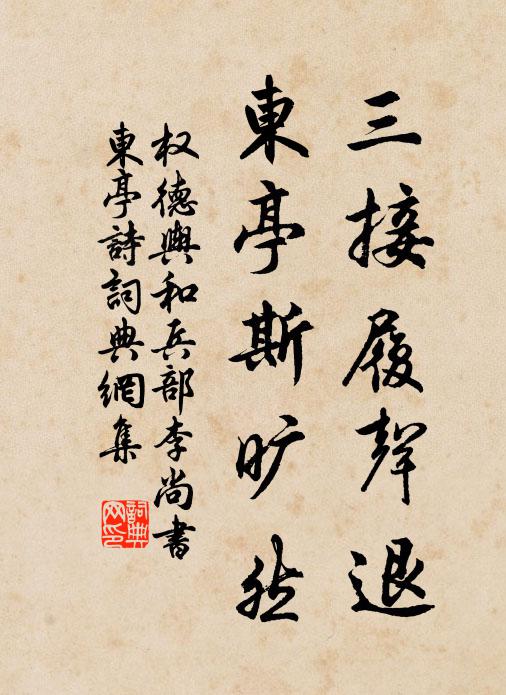 三接履聲退
東亭斯旷然
权德輿和兵部李尚書
東亭詩詞典網集
詞典网印